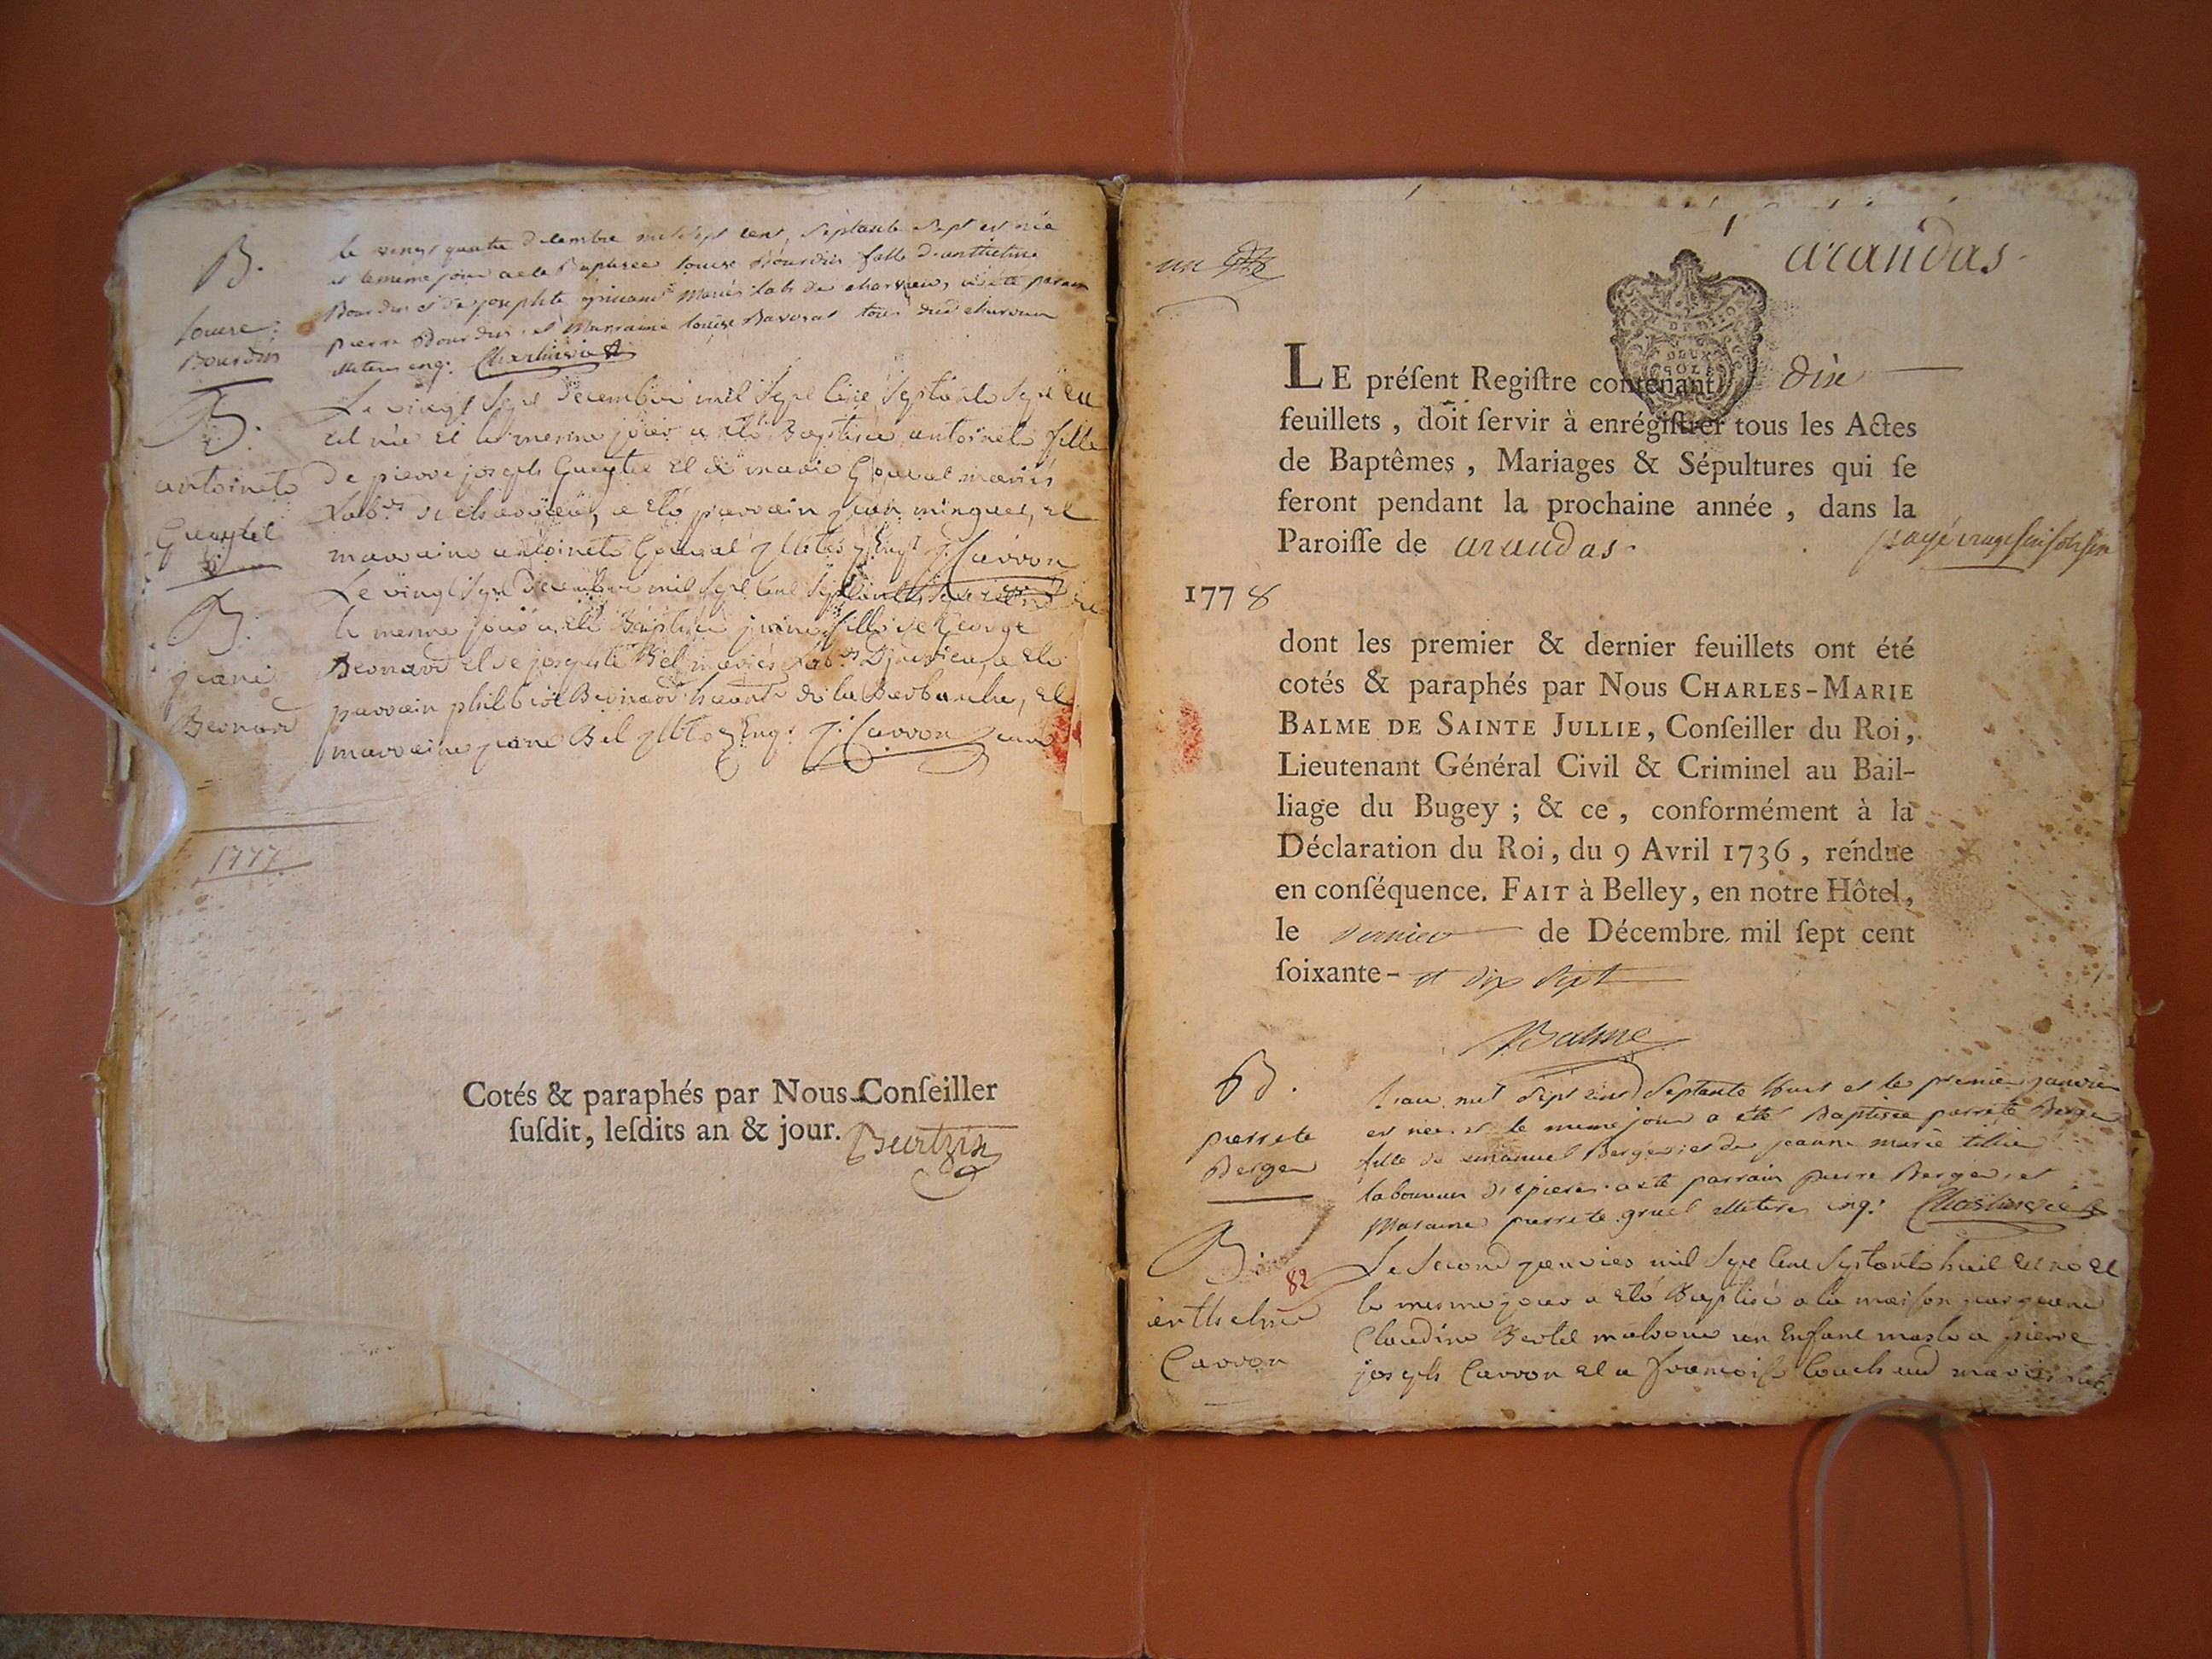 B.
Louise
Bourdin
le vingt quatre decembre mil sept cent septante sept est née
et le meme jour a ete Baptisée louise Bourdin fille d'anthelme
Bourdin et de josephte mariés lab. de charvieu, a été parrain
pierre Bourdin et Marraine louise Bavosat tous dud charveu
illeteres enq.
B.
antoinete
Gueytel
Le vingt Sept decembre mil Sept Cent Septante Sept
est née et le mesme jour a eté Baptisée antoinete fille
de pierre joseph Gueytel et de marie mariés
Labrs de charvieu, a eté parrain jean minguet, et
maraine antoinete illetes Enqt J. Carron
B.
jeane
Bernard
Le vingt Sept decembre mil Sept Cent
le mesme jour a eté Baptisée jeane fille de George
Bernard et de josephte Bel mariés Labrs a eté
parrain philibert Bernard de la Berbanche, et
maraine jeane Bel illetes Enq. J. Carron curé
1777
Cotés & paraphés par Nous Conſeiller
ſuſdit, leſdits an & jour.
arandas
un
LE préſent Regiſtre contenant dix
feuillets, doit ſervir à enrégiſtrer tous les Actes
de Baptêmes, Mariages & Sépultures qui ſe
feront pendant la prochaine année, dans la
Paroiſſe de arandas
payé
1778
dont les premier & dernier feuillets ont été
cotés & paraphés par Nous CHARLES-MARIE
BALME DE SAINTE JULLIE, Conſeiller du Roi,
Lieutenant Général Civil & Criminel au Bail-
liage du Bugey ; & ce, conformément à la
Déclaration du Roi, du 9 Avril 1736, rendue
en conſéquence. FAIT à Belley, en notre Hôtel,
le dernier de Décembre mil ſept cent
ſoixante- et dix sept
Balme
B.
pierrete
Berger
L'an mil sept cent septante huit et le premier janvier
est née et le meme jour a été Baptisée pierrete Berger
fille de emanuel Berger et de jeanne marie tillier
laboureur a été parrain pierre Berger et
Maraine pierrete gruel illeteres enq.
B.
82
anthelme
Carron
Le Second janvier mil Sept Cent Septante huit est né et
le mesme jour a eté Baptisé a la maison par jeane
Claudine Bertel matrone un Enfant masle a pierre
joseph Carron et a françoise Couchoud mariés Lab.